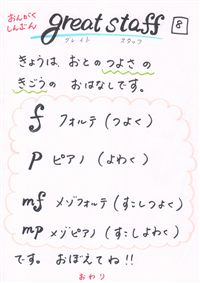 おんがく
しんぶん
great staff
8
グレイト スタッフ
きょうは、おとのつよさの
きごうの おはなしです。
f フォルテ(つよく)
p ピアノ(よわく)
mf メゾフォルテ(すこしつよく)
mp メゾピアノ(すこしよわく)
です。 おぼえてね!!
おわり